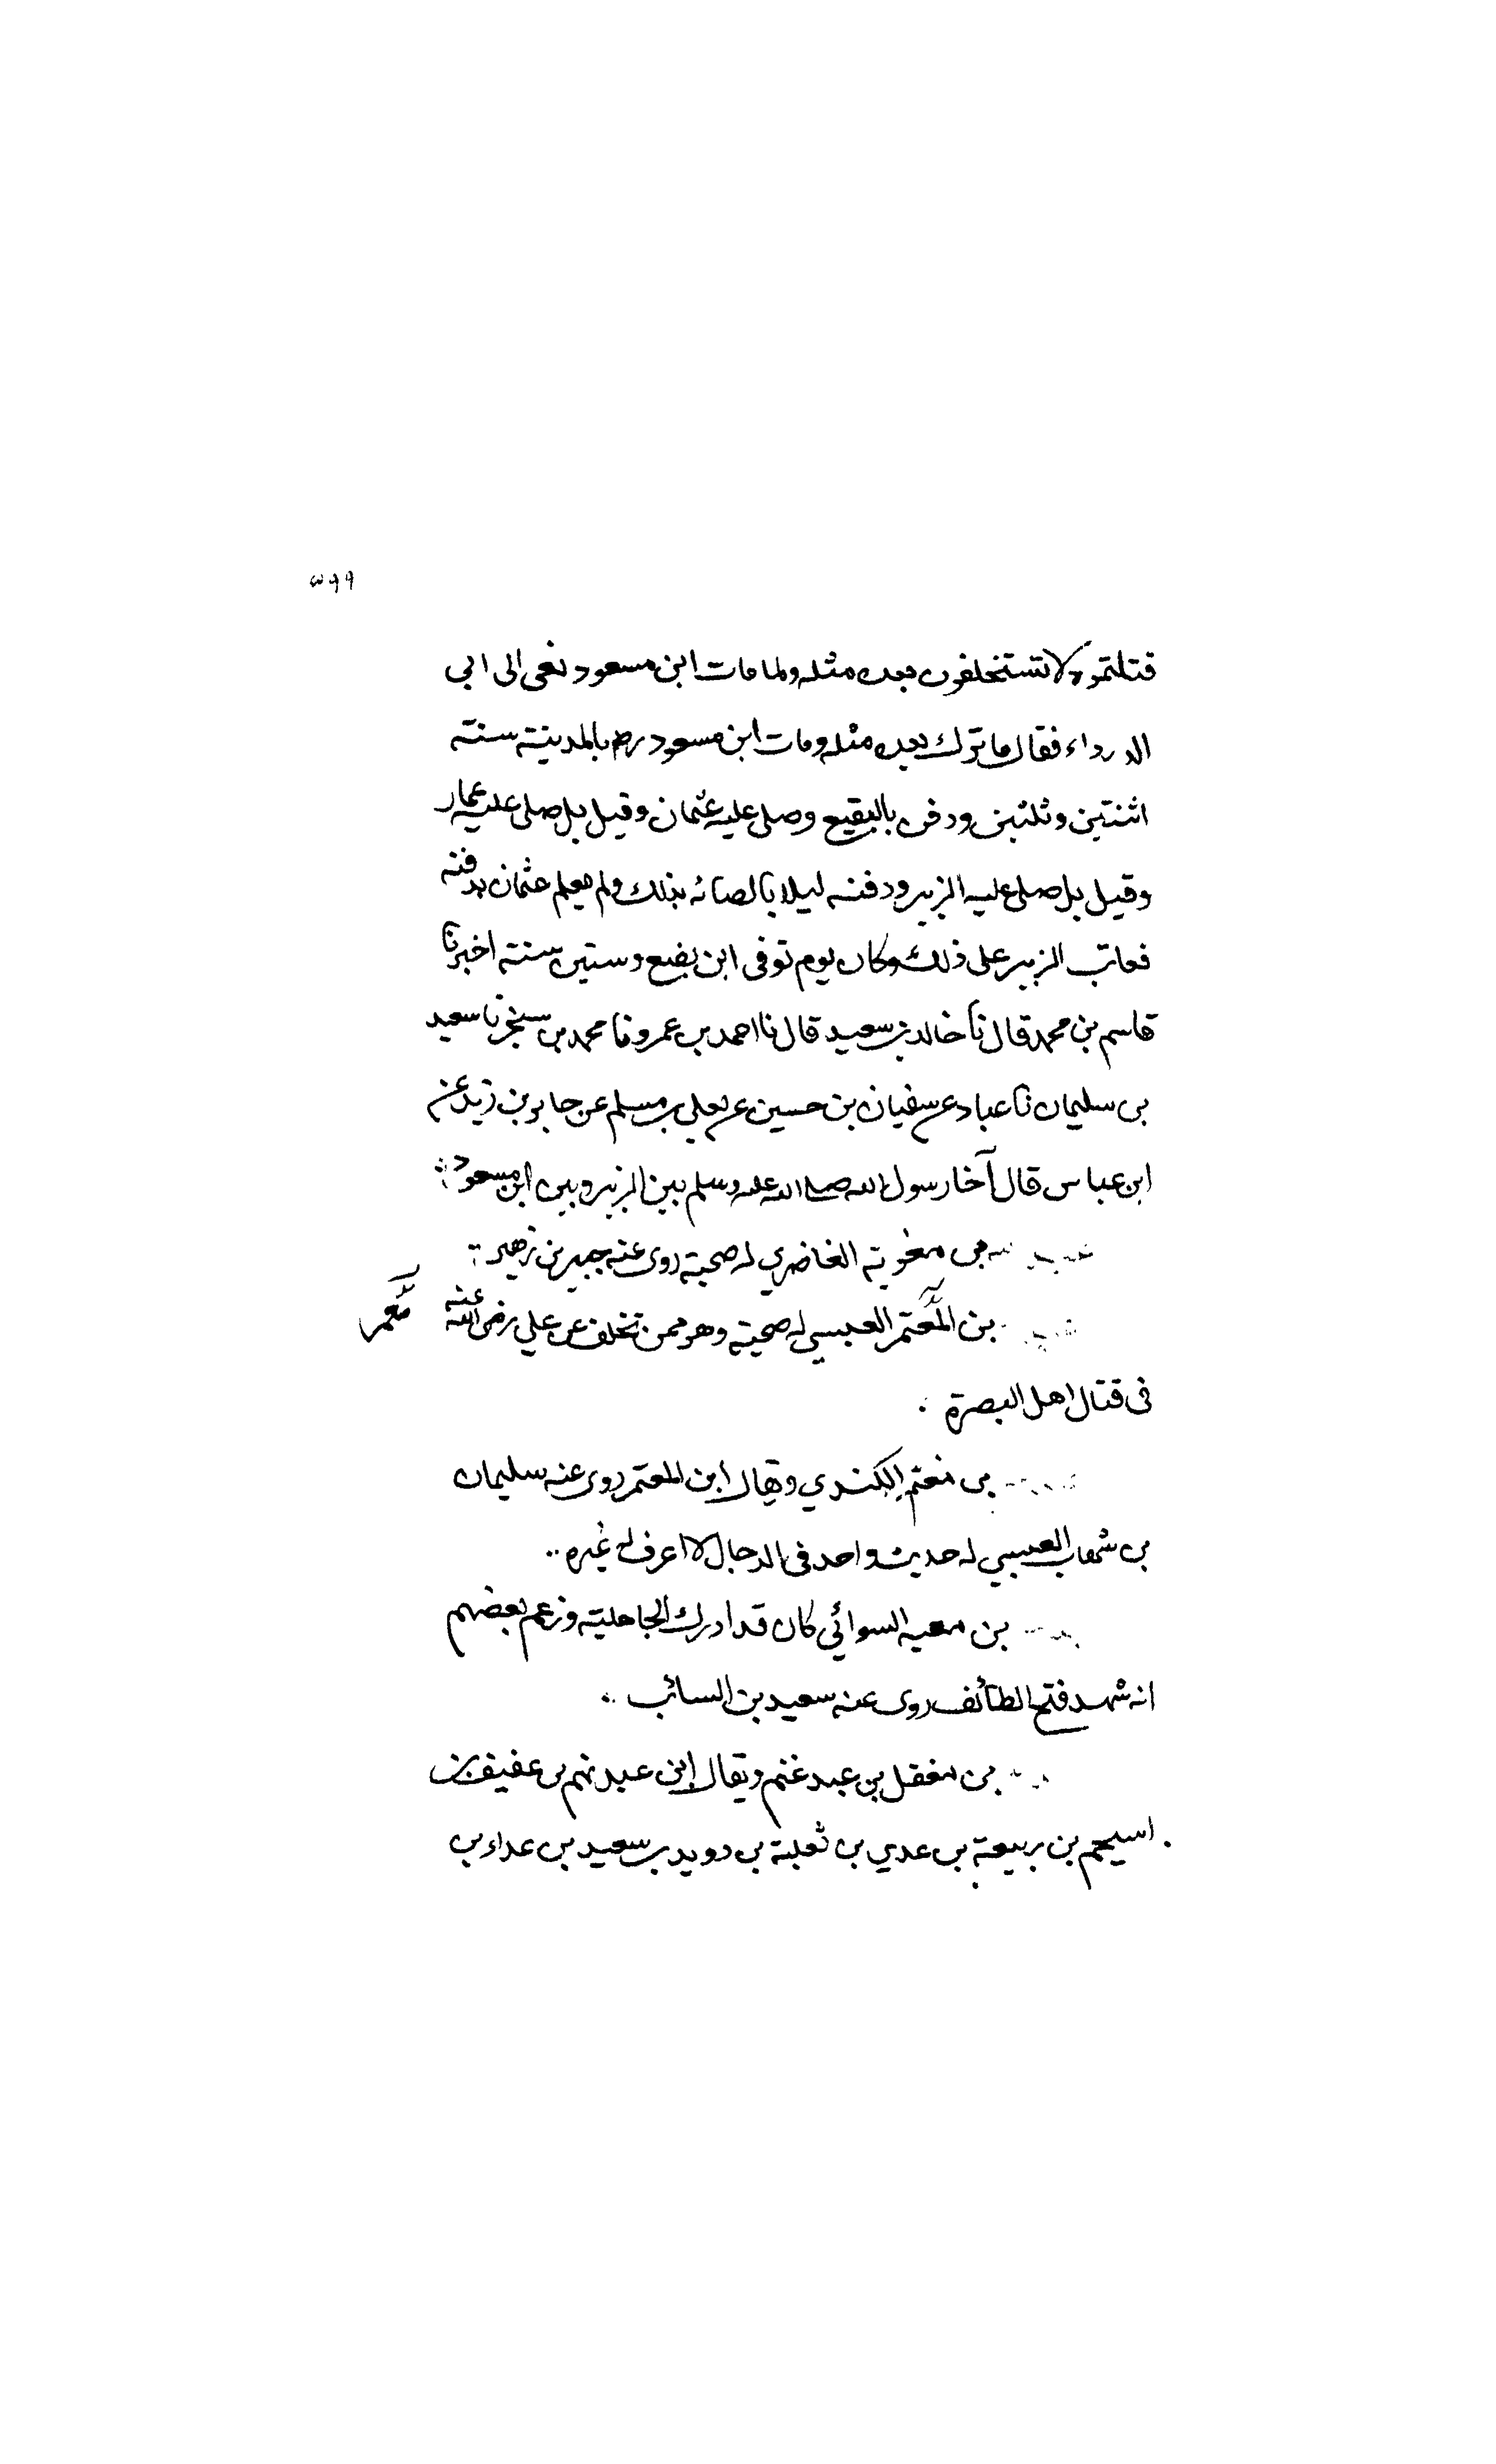 ٣٩٩
قتلتموه لا تستخلفون بعده مثله ولما مات ابن مسعود نعى الى ابي
الدرداء فقال ما ترك بعده مثله ومات ابن مسعود رضه بالمدينة سنة
اثنتين وثلثين ودفن بالبقيع وصلى عليه عثمان وقيل بل صلى عليه عمار
وقيل بل صلى عليه الزبير ودفنه ليلا بايصائه بذلك ولم يعلم عثمان بدفنه
فعاتب الزبير على ذلك وكان يوم توفى ابن بضع وستين سنة اخبرنا
قاسم بن محمد قال نا خالد بن سعيد قال نا احمد بن عمرو نا محمد بن سنجر نا سعيد
بن سليمان نا عباد عن سفيان بن حسين عن يعلي بن مسلم عن جابر بن زيد عن
ابن عباس قال آخا رسول الله صلى الله عليه وسلم بين الزبير وبين ابن مسعود
بن مغوية الغاضري له صحبة روى عنه جبير بن نفير
بن المعتمر العبسي له صحبة وهو ممن تخلف عن علي رضى الله عنه
معمر
فى قتال اهل البصرة
بن معتم الكندي ويقال ابن المعتمر روى عنه سليمان
بن شهاب العبسي له حديث واحد فى الدجال لا اعرف له غيره
بن معية السوائي كان قد ادرك الجاهلية وزعم بعضهم
انه شهد فتح الطائف روى عنه سعيد بن السائب
بن مغفل بن عبد غنم ويقال ابن عبد نهم بن عفيف بن
اسيحم بن ربيعة بن عدي بن ثعلبة بن دويد بن سعيد بن عداء بن